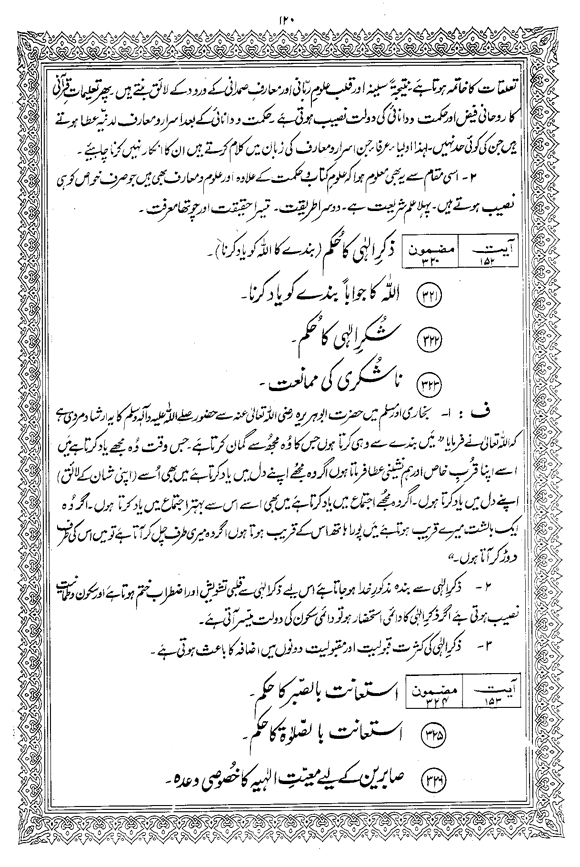 ۱۲۰
تعلقات کا خاتمہ ہوتا ہے۔ نتیجۃً سینہ اور قلب علومِ ربّانی اور معارفِ صمدانی کے ورود کے لائق بنتے ہیں پھر تعلیماتِ قرآنی
کا روحانی فیض اور حکمت و دانائی کی دولت نصیب ہوتی ہے۔ حکمت و دانائی کے بعد اسرار و معارف لدنیّہ عطا ہوتے
ہیں جن کی کوئی حد نہیں۔ لہٰذا اولیاء، عرفاء جن اسرار و معارف کی زبان میں کلام کرتے ہیں ان کا انکار نہیں کرنا چاہئے۔
۲۔ اسی مقام سے یہ بھی معلوم ہوا کہ علومِ کتابی و حکمت کے علاوہ اور علوم و معارف بھی ہیں جو صرف خواص کو ہی
نصیب ہوتے ہیں۔ پہلا علم شریعت ہے۔ دوسرا طریقت۔ تیسرا حقیقت اور چوتھا معرفت۔
آیت ۱۵۲ مضمون ۳۲۰ ذکرِ الٰہی کا حُکم (بندے کا اللہ کو یاد کرنا)۔
۳۲۱ اللہ کا جواباً بندے کو یاد کرنا۔
۳۲۲ شُکرِ الٰہی کا حُکم۔
۳۲۳ ناشُکری کی ممانعت۔
ف : ۱۔ بخاری اور مسلم میں حضرت ابوہریرہ رضی اللہ تعالیٰ عنہ سے حضور صلے اللہ علیہ وآلہٖ وسلم کا یہ ارشاد مروی ہے
کہ اللہ تعالیٰ نے فرمایا "میں بندے سے وہی کرتا ہوں جس کا وُہ مجھُ سے گمان کرتا ہے۔ جس وقت وُہ مجھے یاد کرتا ہے میں
اسے اپنا قربِ خاص اور ہم نشینی عطا فرماتا ہوں اگر وہ مجھے اپنے دل میں یاد کرتا ہے میں بھی اُسے (اپنی شان کے لائق)
اپنے دل میں یاد کرتا ہوں۔ اگر وہ مجھے اجتماع میں یاد کرتا ہے میں بھی اسے اس سے بہتر اجتماع میں یاد کرتا ہوں۔ اگر وُہ
ایک بالشت میرے قریب ہوتا ہے میں پورا ہاتھ اس کے قریب ہوتا ہوں اگر وہ میری طرف چل کر آتا ہے تو میں اس کی طرف
دوڑ کر آتا ہوں۔"
۲۔ ذکرِ الٰہی سے بندہ مذکورِ خدا ہو جاتا ہے اس لیے ذکرِ الٰہی سے قلبی تشویش اور اضطراب ختم ہوتا ہے اور سکون و طمانیت
نصیب ہوتی ہے اگر ذکرِ الٰہی کا دائمی استحضار ہو تو دائمی سکون کی دولت میسّر آتی ہے۔
۳۔ ذکرِ الٰہی کی کثرت قبولیت اور مقبولیت دونوں میں اضافہ کا باعث ہوتی ہے۔
آیت ۱۵۳ مضمون ۳۲۴ استعانت بالصّبر کا حکم۔
۳۲۵ استعانت بالصّلوٰۃ کا حکم۔
۳۲۶ صابرین کے لیے معیّتِ الٰہیہ کا خصُوصی وعدہ۔